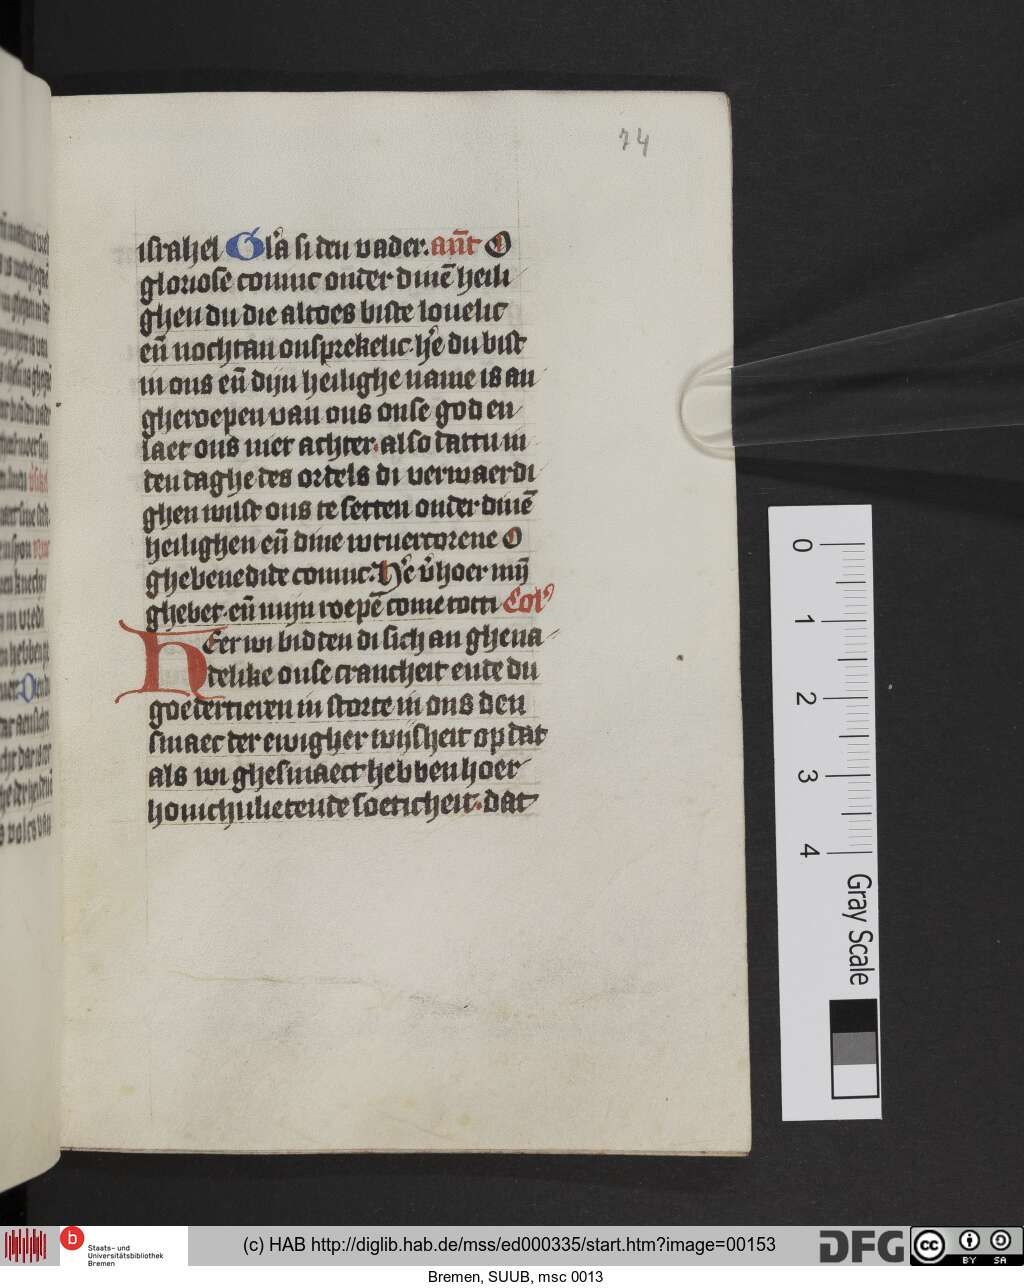 74
israhel Gl'a si den vader. an̄t O
gloriose coninc onder dinē heili
ghen du die altoes biste louelic
en̄ nochtan onsprekelic. h'e du bist
in ons en̄ dijn heilighe name is an
gheroepen van ons onse god en
laet ons niet achter. also dattu in
den daghe des ordels di verwaerdi
ghen wilst ons te setten onder dinē
heilighen en̄ dine wtuercorene O
ghebenedide coninc. H'e v'hoer mijn̄
ghebet. en̄ mijn roepē come totti Col'
HEer wi bidden di sich an ghena
delike onse crancheit ende du
goedertieren in storte in ons den
smaec der ewigher wijsheit op dat
als wi ghesmaect hebben hoer
honichulietende soeticheit. dat
0
1
2
3
4
Gray Scale
b
Staats- und
Universitätsbibliothek
Bremen
(c) HAB http://diglib.hab.de/mss/ed000335/start.htm?image=00153
DFG
cc
BY SA
Bremen, SUUB, msc 0013